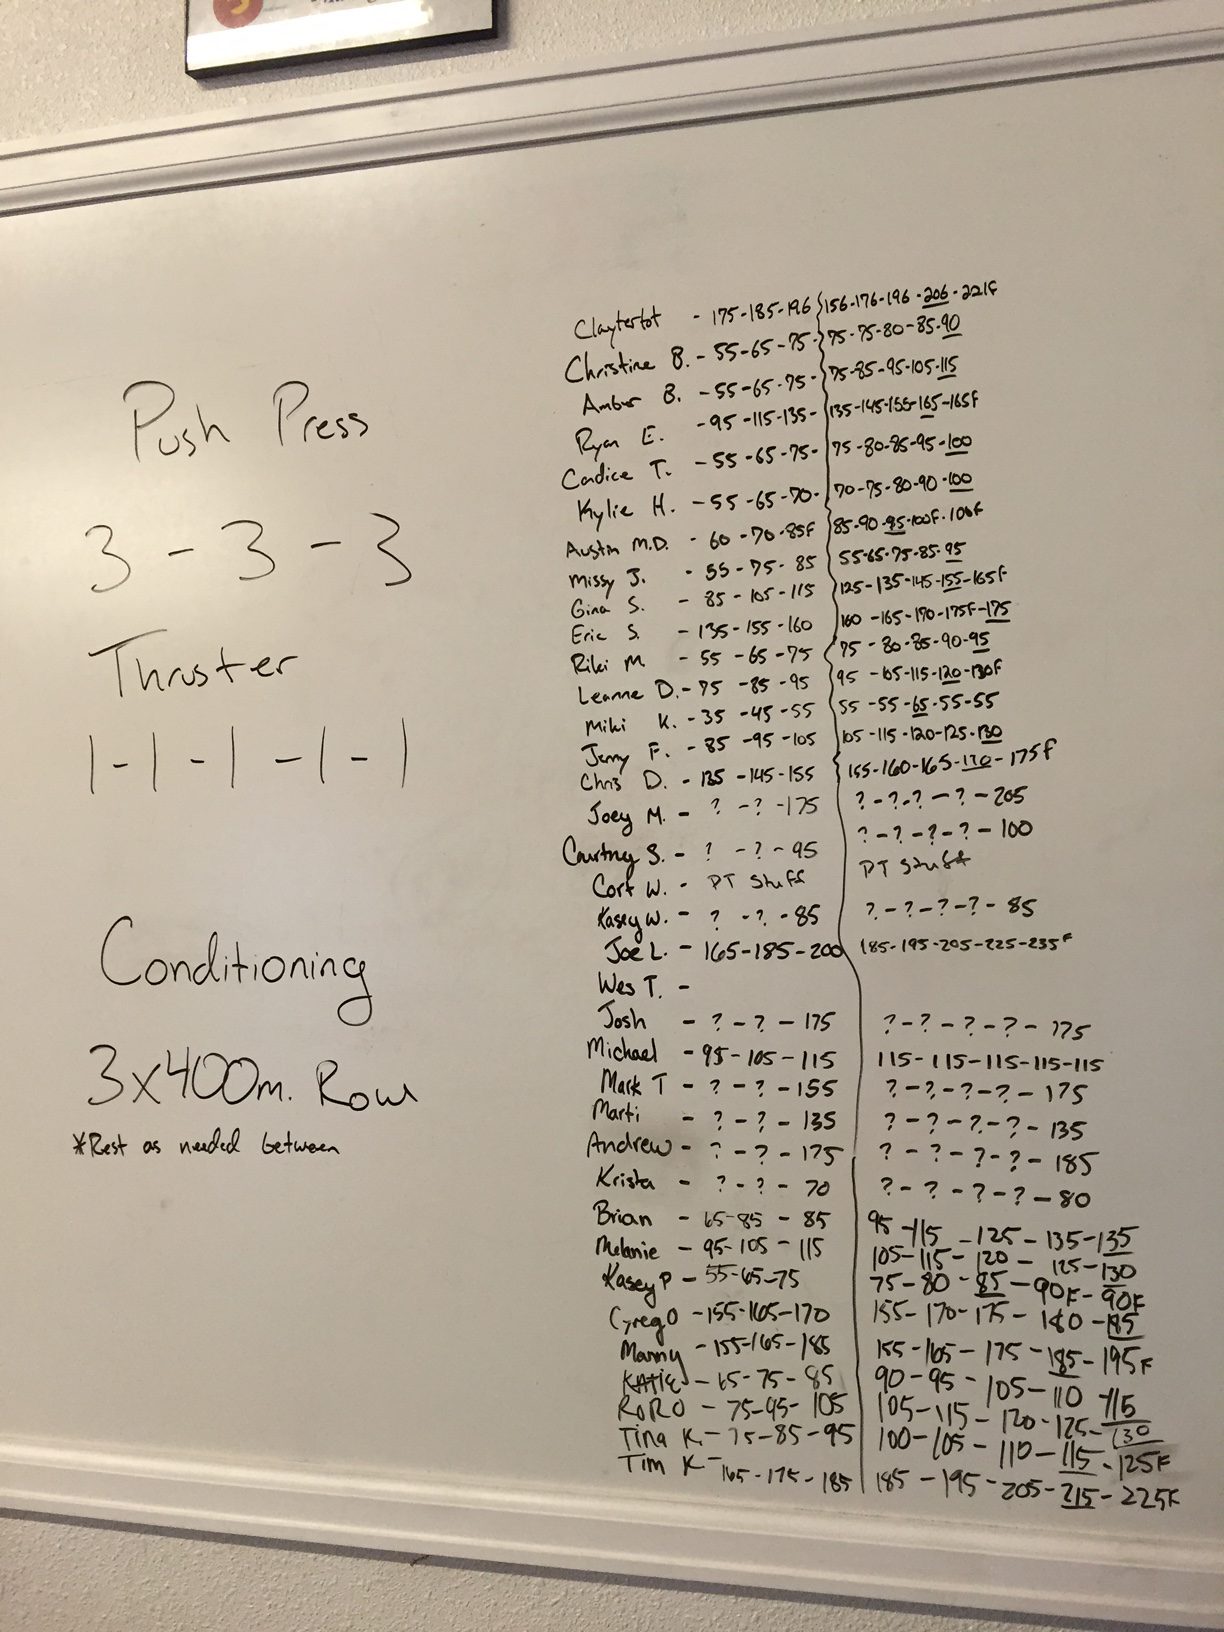 Push Press
3 - 3 - 3
Thruster
1 - 1 - 1 - 1 - 1
Conditioning
3x400m. Row
*Rest as needed between
Claytertot - 175-185-196 156-176-196-206-221F
Christine B. - 55-65-75- 75-75-80-85-90
Amber B. - 55-65-75- 75-85-95-105-115
Ryan E. -95-115-135- 135-145-155-165-165F
Candice T. - 55-65-75- 75-80-85-95-100
Kylie H. - 55-65-70- 70-75-80-90-100
Austin M.D. - 60-70-85F 85-90-95-100F-100F
Missy J. - 55-75-85 55-65-75-85-95
Gina S. - 85-105-115 125-135-145-155-165F
Eric S. - 135-155-160 160-165-170-175F-175
Riki M - 55-65-75 75-80-85-90-95
Leanne D. - 75-85-95 95-105-115-120-130F
Miki K. - 35-45-55 55-55-65-55-55
Jenny F. - 85-95-105 105-115-120-125-130
Chris D. - 135-145-155 155-160-165-170-175F
Joey M. - ? - ? - 175 ? - ? - ? - ? - 205
Courtney S. - ? - ? - 95 ? - ? - ? - ? - 100
Cort W. - PT Stuff PT Stuff
Kasey W. - ? - ? - 85 ? - ? - ? - ? - 85
Joe L. - 165-185-200 185-195-205-225-235F
Wes T. -
Josh - ? - ? - 175 ? - ? - ? - ? - 175
Michael - 95-105-115 115-115-115-115-115
Mark T - ? - ? - 155 ? - ? - ? - ? - 175
Marti - ? - ? - 135 ? - ? - ? - ? - 135
Andrew - ? - ? - 175 ? - ? - ? - ? - 185
Krista - ? - ? - 70 ? - ? - ? - ? - 80
Brian - 65-85-85 95-115-125-135-135
Melanie - 95-105-115 105-115-120-125-130
Kasey P - 55-65-75 75-80-85-90F-90F
Greg O - 155-165-170 155-170-175-180-185
Manny - 155-165-185 155-165-175-185-195F
KATIE - 65-75-85 90-95-105-110-115
RORO - 75-95-105 105-115-120-125-130
Tina K. - 75-85-95 100-105-110-115-125F
Tim K - 165-175-185 185-195-205-215-225F